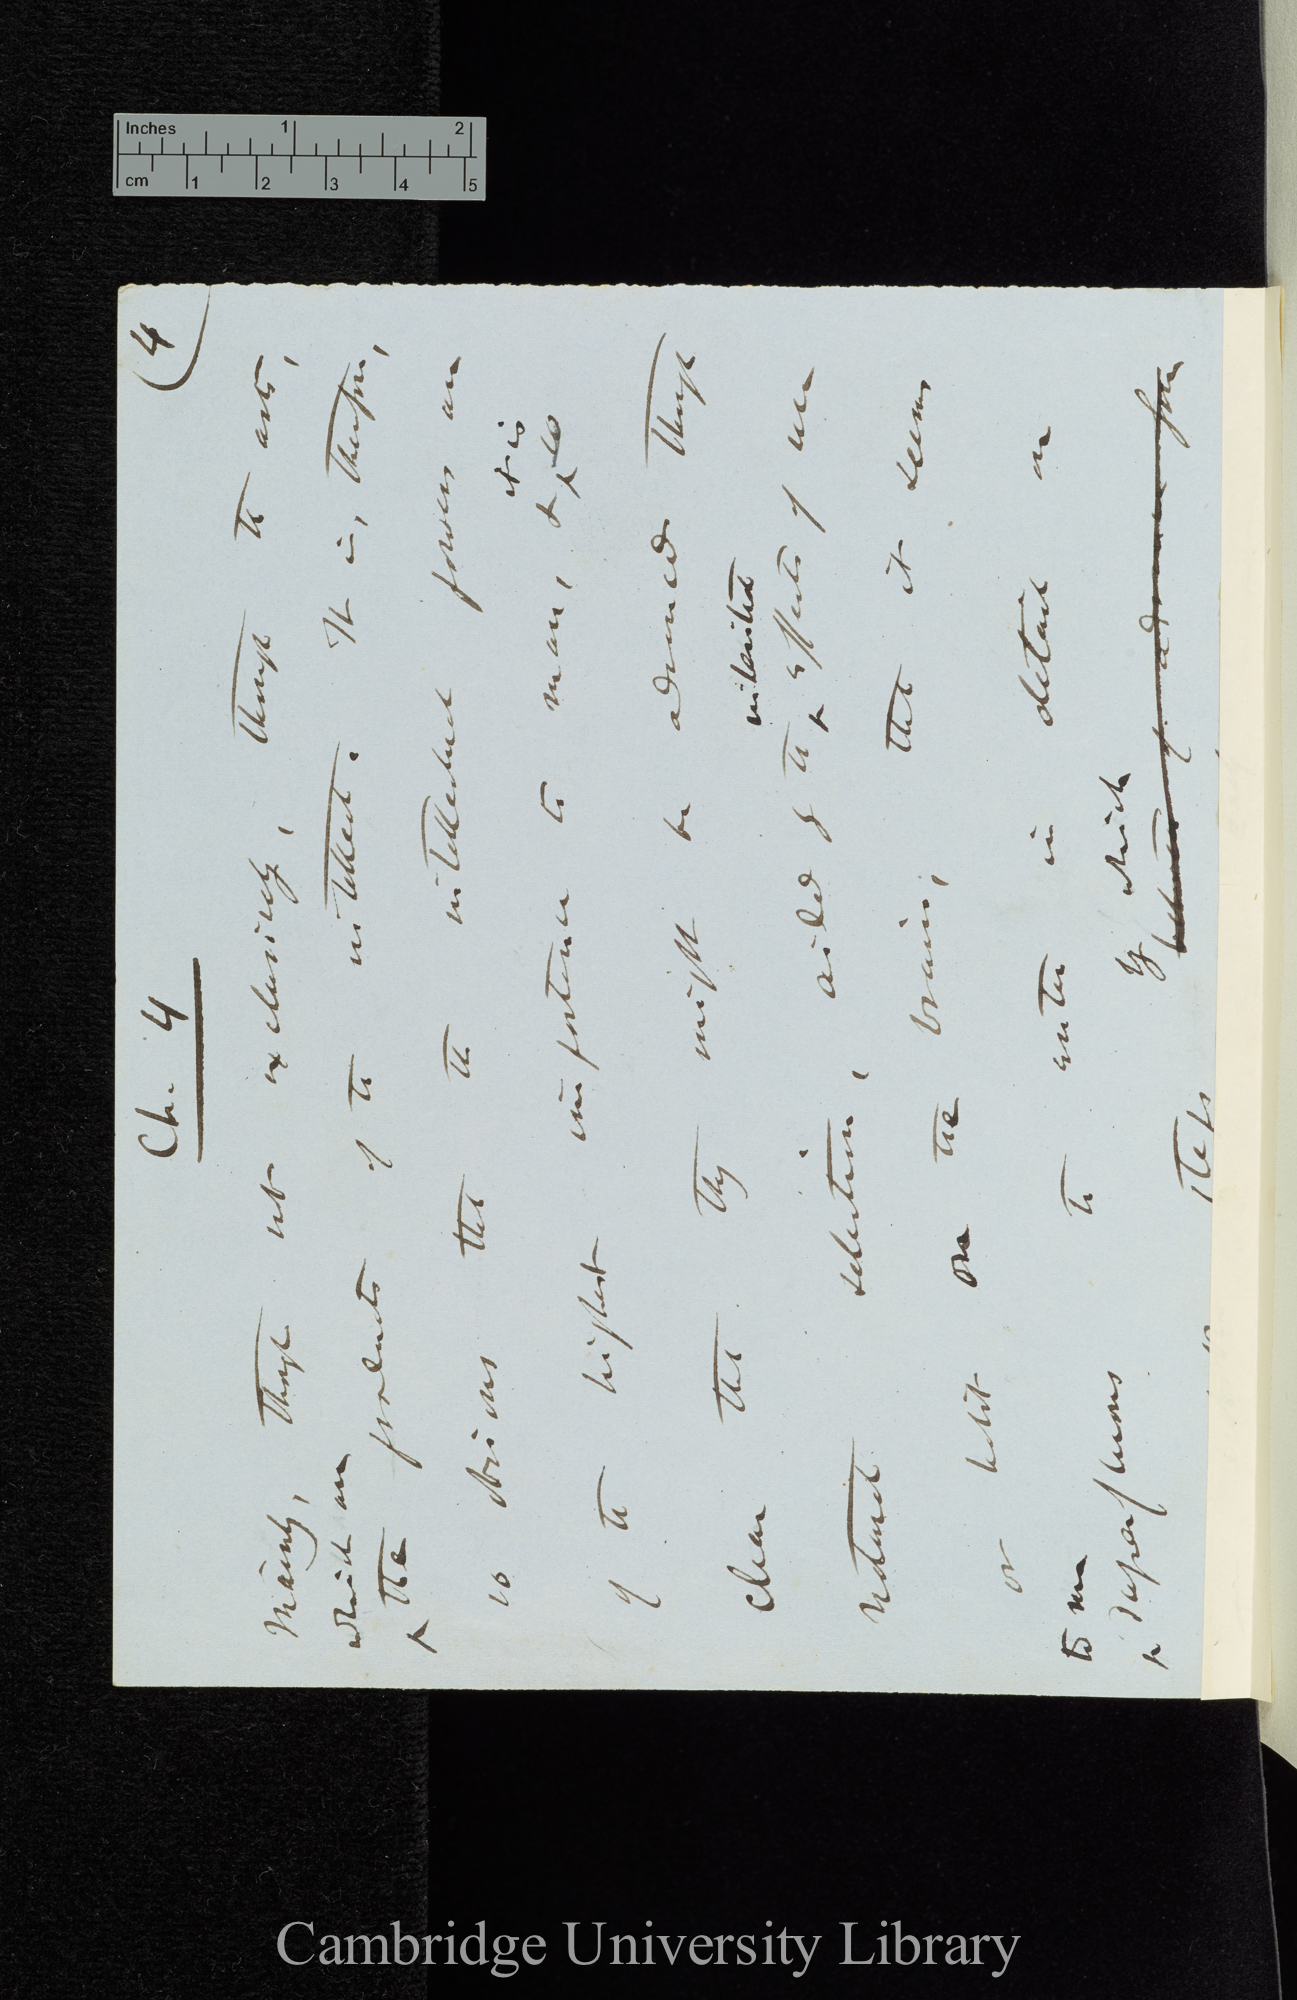 Inches 1 2
cm 1 2 3 4 5
Ch. 4
(4
Mainly, though not exclusively, through the arts,
which are
the products of the intellect. It is, therefore,
so obvious that the intellectual powers are
it is
of the highest importance to man, & so
clear that they might be advanced through
inherited
natural selection, aided by the effects of use
or habit on the brain, that it seems
to me
superfluous to enter in detail on
by which
steps
Cambridge University Library